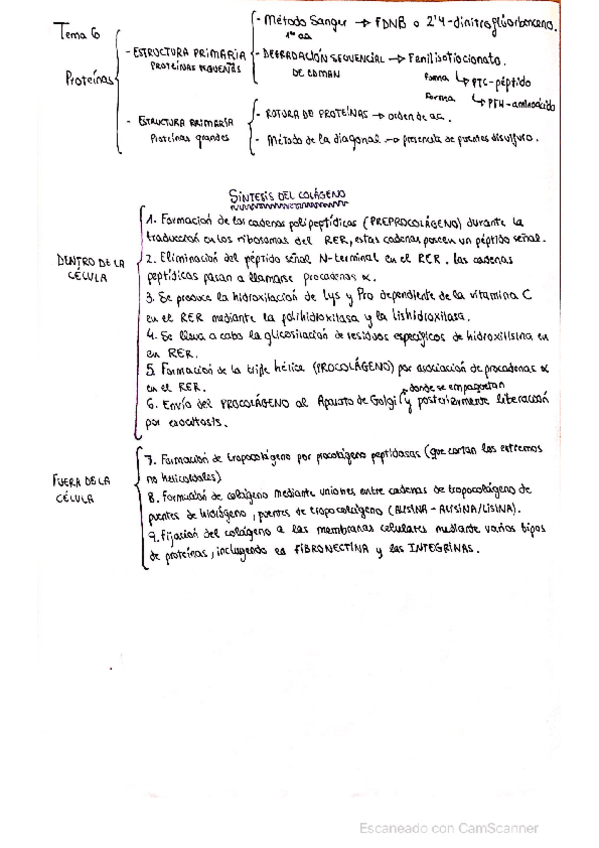 Tema 6
Proteínas
- ESTRUCTURA PRIMARIA
PROTEÍNAS PEQUEÑAS
- Método Sanger → FDNB o 2'4-dinitroflúorbenceno.
1er aa
- DEGRADACIÓN SEQUENCIAL → Fenilisotiocianato.
DE EDMAN
Forma ↳ PTC-péptido
Forma ↳ PTH-aminoácido
- ESTRUCTURA PRIMARIA
Proteínas grandes
- ROTURA DE PROTEÍNAS → orden de aa.
- Método de la diagonal → presencia de puentes disulfuro.
SÍNTESIS DEL COLÁGENO
DENTRO DE LA
CÉLULA
1. Formación de las cadenas polipeptídicas (PREPROCOLÁGENO) durante la
traducción en los ribosomas del RER, estas cadenas poseen un péptido señal.
2. Eliminación del péptido señal N-terminal en el RER. Las cadenas
peptídicas pasan a llamarse procadenas α.
3. Se produce la hidroxilación de Lys y Pro dependiente de la vitamina C
en el RER mediante la prolihidroxilasa y la lisihidroxilasa.
4. Se lleva a cabo la glicosilación de residuos específicos de hidroxilisina en
en RER.
5. Formación de la triple hélice (PROCOLÁGENO) por asociación de procadenas α
en el RER.
donde se empaquetan
6. Envío del PROCOLÁGENO al Aparato de Golgi y posteriormente liberación
por exocitosis.
FUERA DE LA
CÉLULA
7. Formación de tropocolágeno por procolágeno peptidasas (que cortan los extremos
no helicoidales)
8. Formación de colágeno mediante uniones entre cadenas de tropocolágeno de
puentes de hidrógeno, puentes de tropocolágeno (ALISINA - ALISINA/LISINA).
9. Fijación del colágeno a las membranas celulares mediante varios tipos
de proteínas, incluyendo la FIBRONECTINA y las INTEGRINAS.
Escaneado con CamScanner